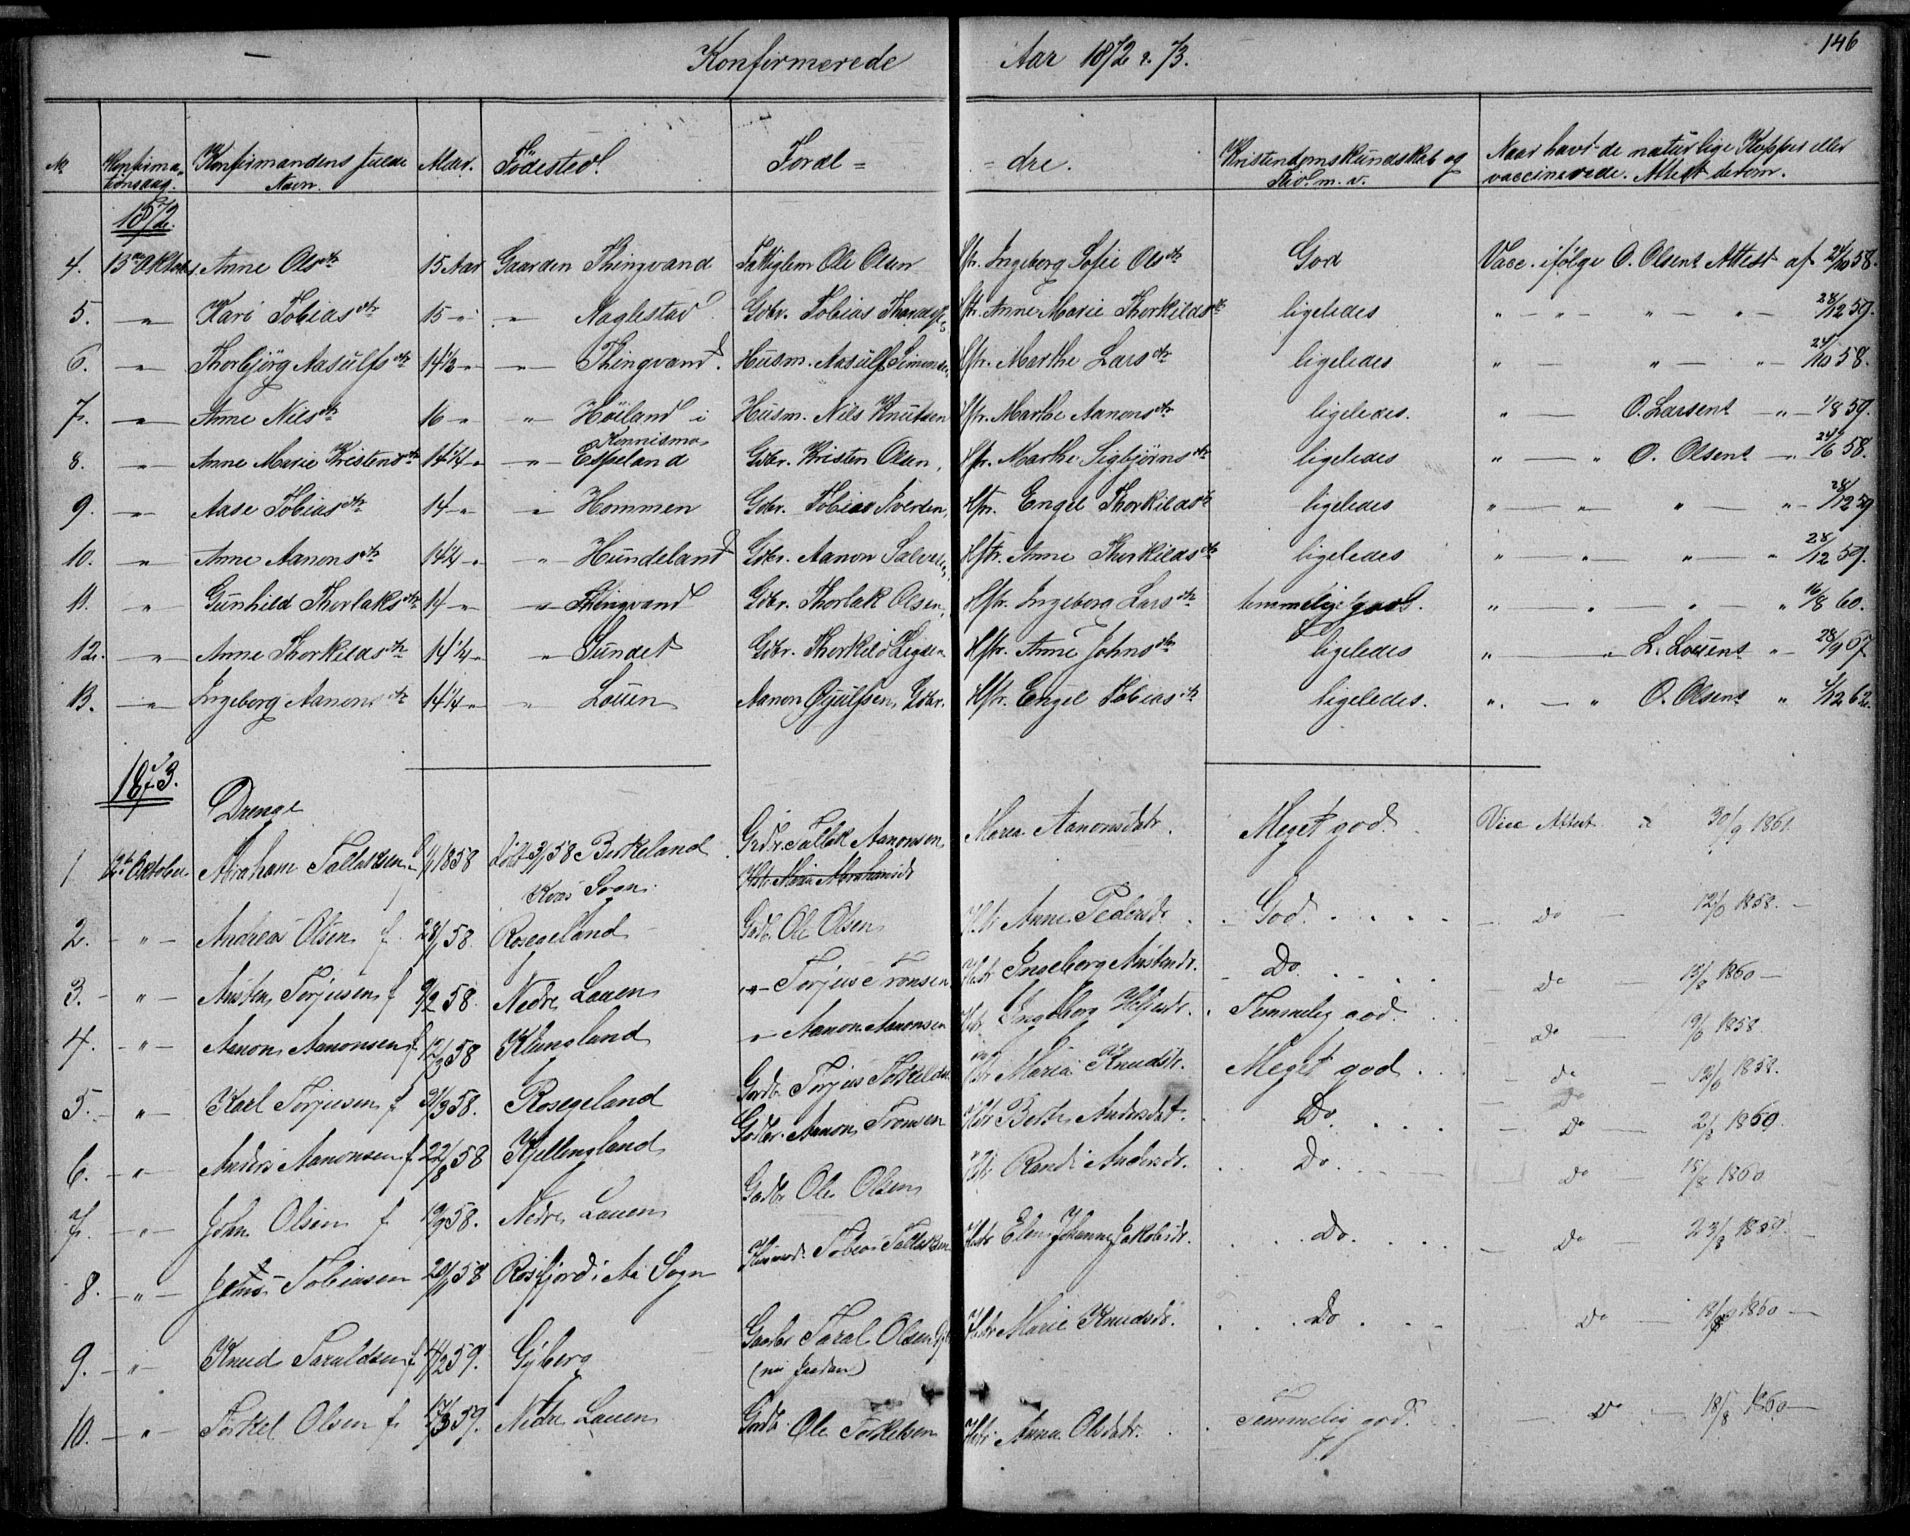 Konfirmerede Aar 1872 & 73. 146
No Konfirmationsdag. Konfirmandens fulde Navn. Alder. Födested. Foræl= =dre. Kristendomskundskab og Flid. m. v. Naar havt de naturlige Kopper eller vaccinerede. Attest derom.
1872.
4. 13de Oktobr Anne Olsdtr 15 Aar Gaarden Thingvand Fattiglem Ole Olsen Hstr. Ingeborg Sofie Olsdtr God Vacc. ifölge O. Olsens Attest af 24/10 58.
5. " Kari Tobiasdtr 15 " " Naglestad Gdbr. Tobias Hstr. Anne Marie Thorkildsdtr ligeledes " " " " 28/12 59.
6. " Thorbjörg Aasulfsdtr 14½ " " Thingvand. Husm. Aasulf Simonsen Hstr. Marthe Larsdtr ligeledes " " " 24/10 58.
7. " Anne Nilsdtr 16 " " Höiland i Husm. Nils Knutsen Hstr. Marthe Aanonsdtr ligeledes. " O. Larsens " 1/8 59.
Konnismo
8. " Anne Marie Kristensdtr 14¼ " " Espeland Gdbr. Kristen Olsen, Hstr. Marthe Sigbjörnsdtr ligeledes " " O. Olsens " 24/6 58.
9. " Aase Tobiasdtr 14 " " Hommen Gdbr. Tobias Iversen, Hstr. Engel Thorkildsdtr ligeledes " " " " 28/12 59
10. " Anne Aanonsdtr 14¼ " " Hundeland Gdbr. Aanon Salvesen, Hstr. Anne Thorkildsdtr ligeledes " " " " 28/12 59.
11. " Gunhild Thorlaksdtr 14 " " Thingvand Gdbr. Thorlak Olsen, Hstr. Ingeborg Larsdtr temmelig god. " " " " 16/8 60.
12. " Anne Thorkildsdtr 14¼ " " Sundet Gdbr. Thorkild Hstr. Anne Johnsdtr ligeledes " " L. Louens " 28/9 67
13. " Ingeborg Aanonsdtr 14¼ " " Louen Aanon Gjulfsen, Gdbr. Hstr. Engel Tobiasdtr ligeledes. " " O. Olsens " 1/12 62.
1873.
Drenge
1 12te Oktober Abraham Tallaksen f. 1858 58 Birkeland Gbr. Tallak Aanonsen Maren Aanonsdatr. Meget god. Vacc Attest 30/9 1861.
Kvas Sogn. Hstr Maria Abrahamsdt
2. " Andreas Olsen f. 28/ 58. Rosegeland Gbdr Ole Olsen Hstr Anne Pedersdtr. God. Do 12/9 1858.
3. " Austen Torjusen f 9/2 58. Nedre Lauen " Torjus Tronsen Hstr Ingeborg Austensdr. Do. Do 15/8 1860
4. " Aanon Aanonsen f. 12/3 58 Klungland " Aanon Aanonsen Hstr Ingeborg Temmelig god. Do 1858.
5. " Karl Torjusen f 31/3 58. Rosegeland Gbdr Torjus Torkelsen Hstr Maria Knudsdtr. Meget god. Do 12/9 1858.
6. " Anders Aanonsen f 22/8 58 Kjellingland Gbdr. Aanon Tronsen Hstr Berthe Andersdat. Do. Do 2/8 1860.
7. " John Olsen f 19/9 58. Nedre Lauen Gbdr Ole Olsen Hstr Randi Andersdr. Do. Do 15/8 1860
8. " Jens Tobiasen 20/ 58 Rosfjord i Aa Sogn Husmd. Tobias Tallaksen Hstr Elen Johanne Jakobsdr. Do. Do 23/8 1859.
9. " Knud Taraldsen f 14/2 59. Gyberg Gaardbr Taral Olsen Hstr Marie Knudsdr. Do Do 18/8 1860
(nu Jordan)
10. " Torkel Olsen f. 17/3 59. Nedre Lauen Gbdr. Ole Torkelsen Hstr Anna Olsdatr. Temmelig god. Do 18/8 1860